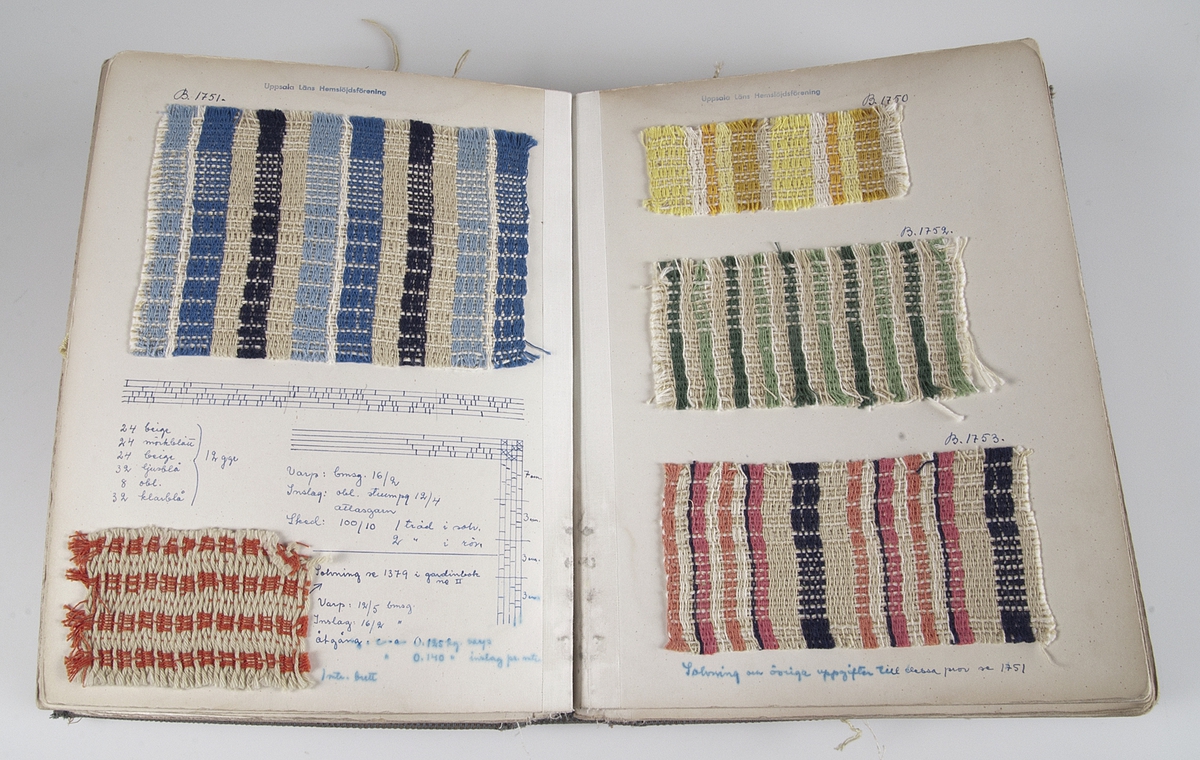 Uppsala Läns Hemslöjdsförening
B. 1751.
24 beige
24 mörkblått
24 beige
32 ljusblå
8 obl.
32 klarblå
12 ggr
Varp: bmsg. 16/2
Inslag: obl. 12/4
Sked: 100/10 1 tråd i solv.
2 " i rör
7 cm.
3 cm.
3 cm.
3 cm.
Solvning se 1379 i gardinbok
no II
Varp: 12/5 bmsg.
Inslag: 16/2 "
Åtgång:
" 0.140 " inslag pr mtr.
Uppsala Läns Hemslöjdsförening
B. 1750
B. 1752.
B. 1753.
Solvning övriga uppgifter till dessa prov se 1751